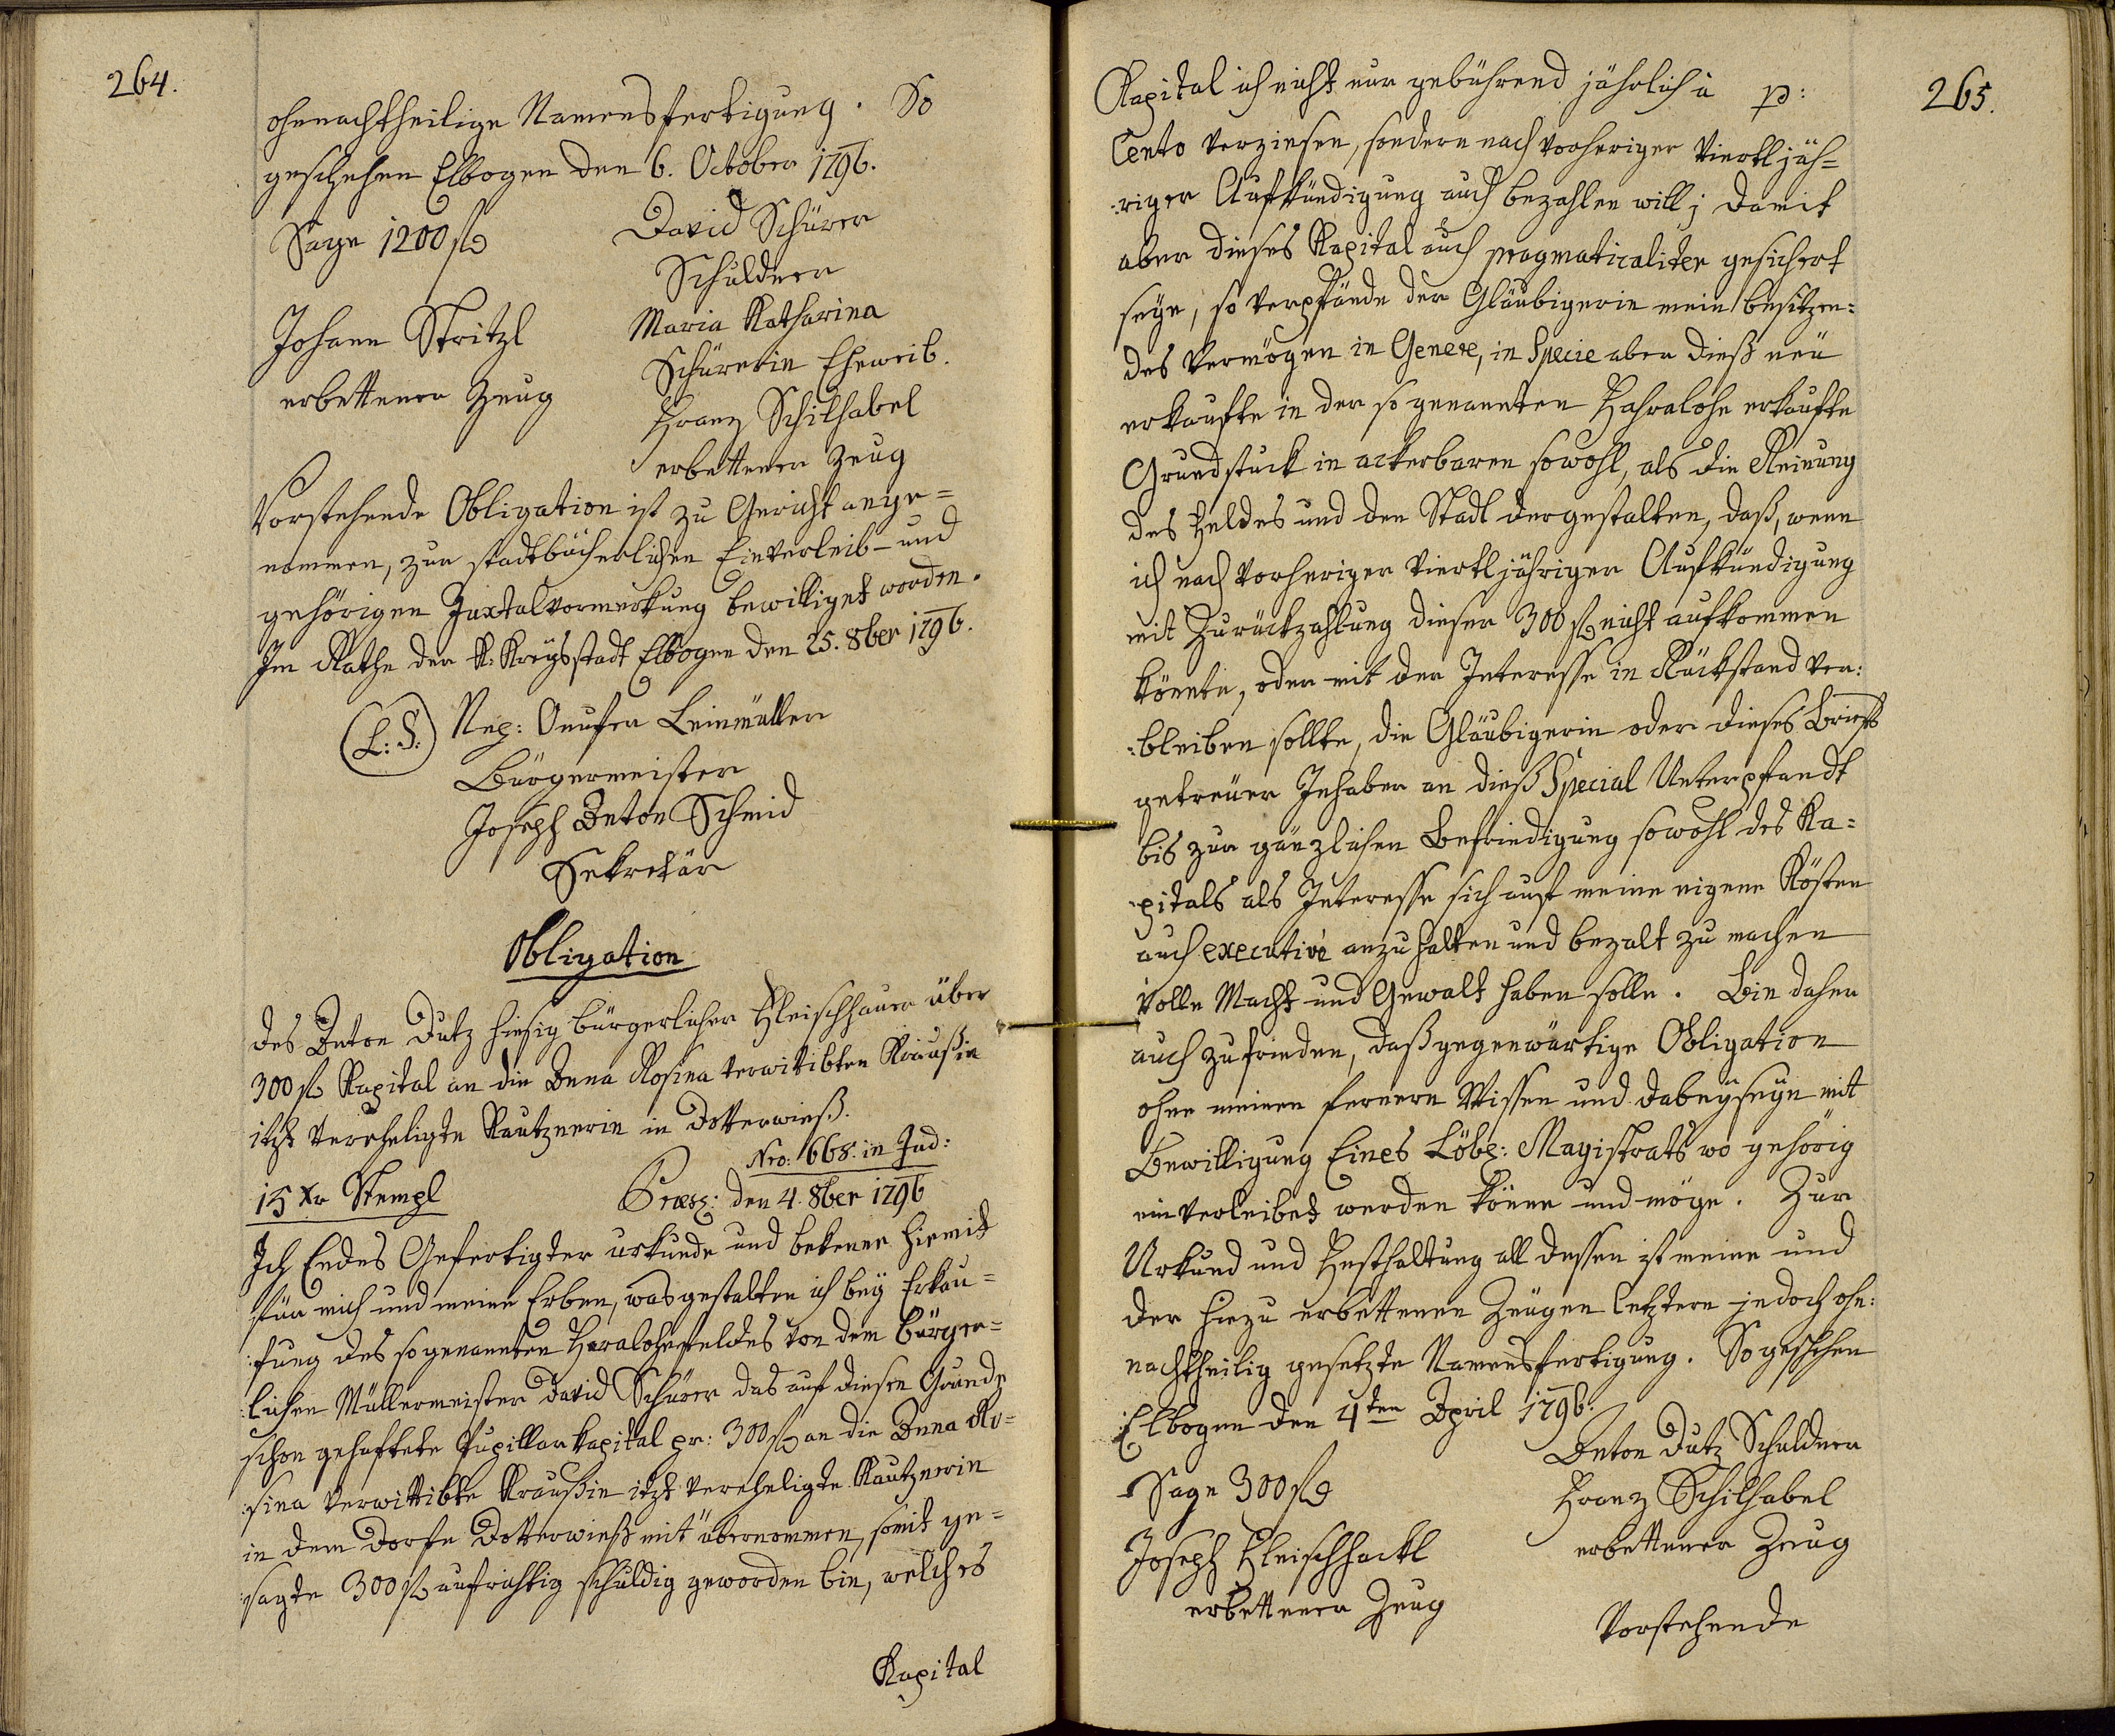 264.
ohnnachtheilige Namensfertigung. So
geschehen Elbogen den 6. October 1796.
Sage 1200 fl
David Schürer
Schuldner
Johann Stritzl
erbettener Zeug
Maria Katharina
Schürerin Eheweib.
Franz Schilhabel
erbettener Zeug
Vorstehende Obligation ist zu Gericht ange=
nommen, zur stadtbücherlichen Einverleib- und
gehörigen Juxtalvormerkung bewilliget worden.
Im Rathe der K: Kreysstadt Elbogen den 25. 8ber 1796.
(L: S:)
Nep: Onufer Leinmüller
Bürgermeister
Joseph Anton Schmid
Sekretär
Obligation
des Anton Dutz hiesig bürgerlicher Fleischhauer über
300 fl Kapital an die Anna Rosina verwitibten Kraußin
itzt verehligte Kautznerin in Dotterwieß.
Nro: 668. in Jud:
15 Xr Stempl
Præs: den 4. 8ber 1796
Ich Endes Gefertigter urkunde und bekenne hiemit
für mich und meine Erben, wasgestalten ich bey Erkau=
:fung des sogenannten Haralohefeldes von dem bürger=
:lichen Müllermeister David Schürer das auf diesen Grunde
schon gehaftete Pupillarkapital pr: 300 fl an die Anna Ro=
:sina verwittibte Kraußin itzt verehligte Kautznerin
in dem Dorfe Dotterwieß mit übernommen, somit ge=
:sagte 300 fl aufrichtig schuldig geworden bin, welches
Kapital
265.
Kapital ich nicht nur gebührend jährlich à p:
Cento verzinsen, sondern nach vorheriger viertljäh=
:riger Aufkündigung auch bezahlen will; damit
aber dieses Kapital auch pragmaticaliter gesichert
seye, so verpfände der Gläubigerin mein besitzen:
des Vermögen in Genere, in Specie aber dieß neü
erkaufte in der so genannten Haralohe erkaufte
Grundstuck in ackerbaren sowohl, als die Reinung
des Feldes und den Stadl dergestalten, daß, wenn
ich nach vorheriger viertljähriger Aufkündigung
mit Zurückzahlung dieser 300 fl nicht aufkommen
könnte, oder mit der Interesse in Rückstand ver:
:bleiben sollte, die Gläubigerin oder dieses Briefs
getreuer Inhaber an dieß Special Unterpfandt
bis zur gänzlichen Befriedigung sowohl des Ka=
:pitals als Interesse sich auf meine eigene Kösten
auch executivè anzuhalten und bezalt zu machen
volle Macht und Gewalt haben solle. Bin daher
auch zufrieden, daß gegenwärtige Obligation
ohne meinen fernern Wissen und dabeyseyn mit
Bewilligung Eines Löbl: Magistrats wo gehörig
einverleibet werden könne und möge. Zur
Urkund und Festhaltung all dessen ist meine und
der hiezu erbettenen Zeugen letztern jedoch ohn:
nachtheilig gesetzte Namensfertigung. So geschehen
Elbogen den 4ten April 1796.
Anton Dutz Schuldner
Sage 300 fl
Franz Schilhabel
erbettener Zeug
Joseph Fleischhackl
erbettener Zeug
Vorstehende